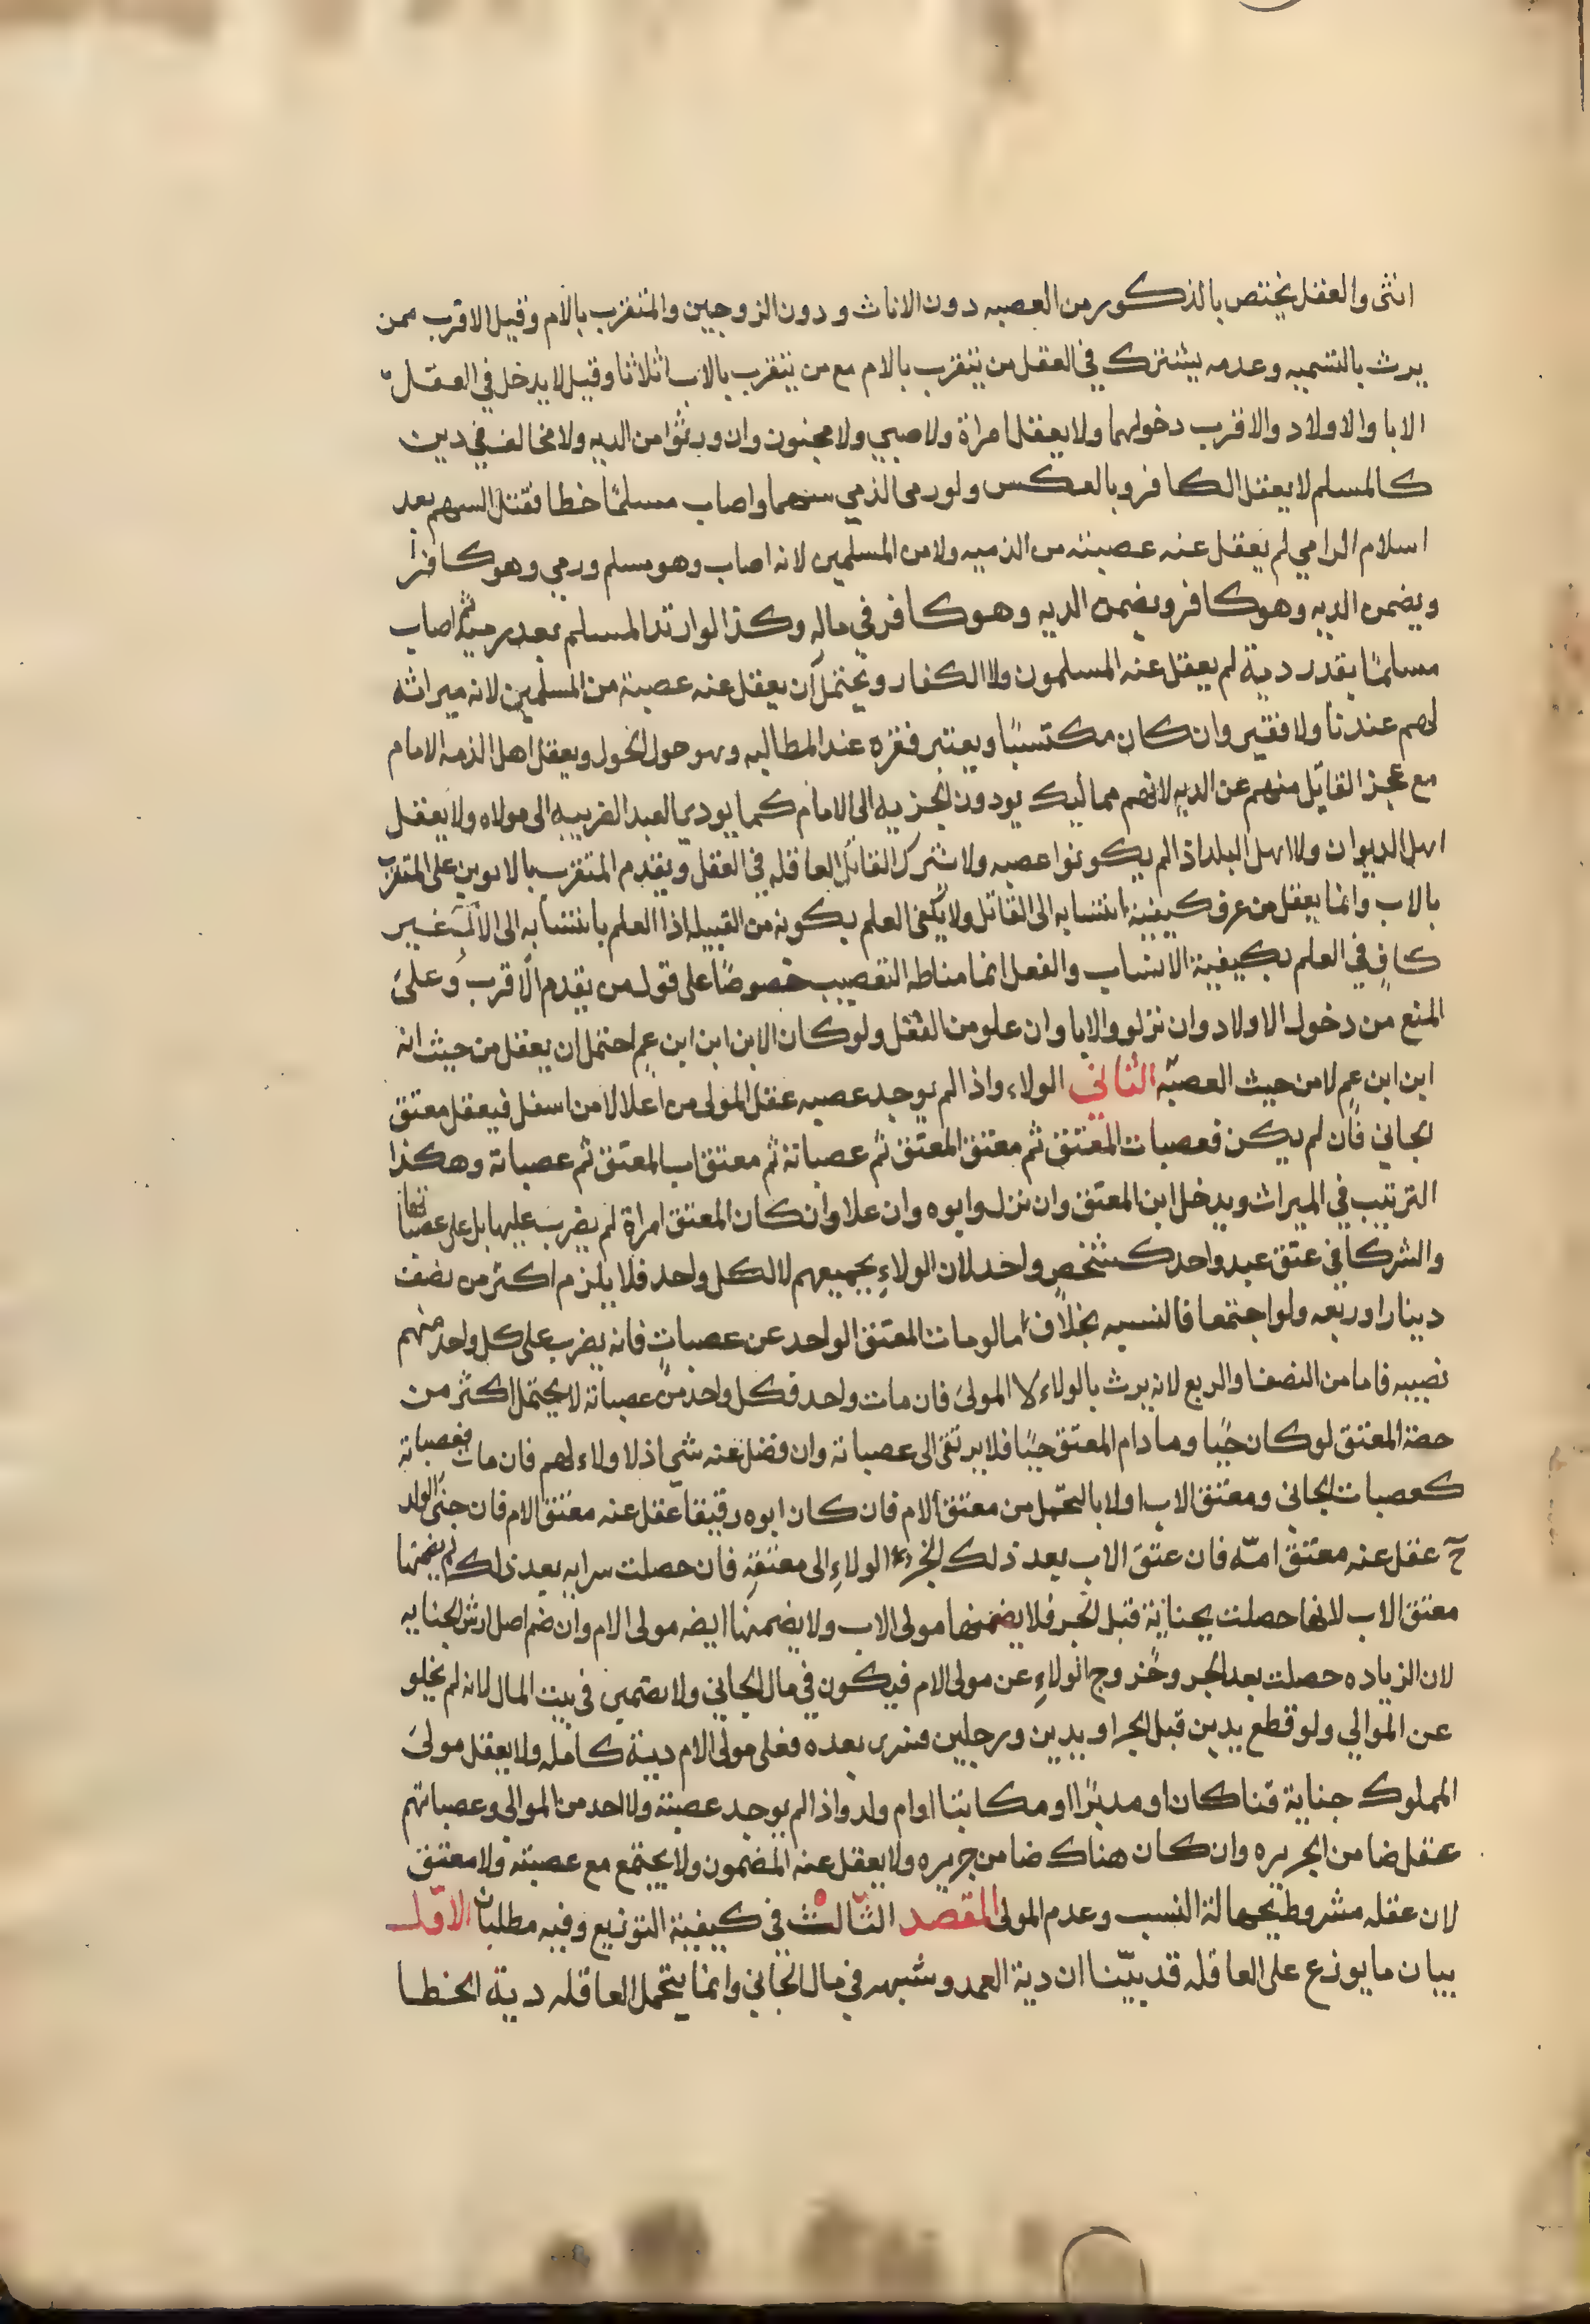 انثى والعقل يختص بالذكور من العصبه دون الاناث ودون الزوجين والمتقرب بالام وقيل الاقرب ممن
يرث بالتسميه وعدمه يشترك في العقل من يتقرب بالام مع من يتقرب بالاب اثلاثا وقيل لا يدخل في العقل
الابا والاولاد والاقرب دخولهما ولا يعقل امراة ولا صبي ولا مجنون وان ورثوا من الديه ولا مخالف في دين
كالمسلم لا يعقل الكافر وبالعكس ولو رمى الذمي سهما واصاب مسلما خطا فقتل السهم بعد
اسلام الرامي لم يعقل عنه عصبته من الذميه ولا من المسلمين لانه اصاب وهو مسلم ورمي وهو كافرا
ويضمن الديه وهو كافر ويضمن الديه وهو كافر في ماله وكذا لو ارتد المسلم بعد رميه ثم اصاب
مسلما بقدر دية لم يعقل عنه المسلمون ولا الكفار ويحتمل أن يعقل عنه عصبة من المسلمين لانه ميراثه
لهم عندنا ولا فقير وان كان مكتسبا ويعتبر فقره عند المطالبه وهو حول الحول ويعقل اهل الذمه الامام
مع عجز القاتل منهم عن الديه لانهم مماليك يودون الجزيه الى الامام كما يودي العبد الضريبه الى مولاه ولا يعقل
اهل الديوان ولا اهل البلد اذا لم يكونوا عصبه ولا شرك القاتل العاقله في العقل ويقدم المتقرب بالابوين على المتقرب
بالاب وانما يعقل من عرف كيفية انتسابه الى القاتل ولا يكفى العلم بكونه من القبيله اذا العلم بانتسابه الى الاب غير
كاف في العلم بكيفية الانتساب والفعل انما مناطه التعصيب خصوصا على قول من يقدم الاقرب وعلى
المنع من دخول الاولاد وان نزلو والابا وان علو من العقل ولو كان الابن ابن ابن عم احتمل ان يعقل من حيث انه
ابن ابن عم لا من حيث العصبه الثاني الولاء واذا لم يوجد عصبه عقل المولى من اعلا لا من اسفل فيعقل معتق
الجاني فان لم يكن فعصبات المعتق ثم معتق المعتق ثم عصباته ثم معتق اب المعتق ثم عصباته وهكذا
الترتيب في الميراث ويدخل ابن المعتق وان نزل وابوه وان علا وان كان المعتق امراة لم يضرب عليها بل على عصباتها
والشركا في عتق عبد واحد كشخص واحد لان الولاء بجميعهم لا لكل واحد فلا يلزم اكثر من نصف
دينار او ربعه ولو اجتمعا فالنسبه بخلاف ما لو مات المعتق الواحد عن عصبات فانه يضرب على كل واحد منهم
نصيبه فاما من النصف او الربع لانه يرث بالولاء لا المولى فان مات واحد فكل واحد من عصباته لا يحتمل اكثر من
حصة المعتق لو كان حيا وما دام المعتق حيا فلا يرتقى الى عصباته وان فضل عنه شي اذ لا ولاء لهم فان مات فعصباته
كعصبات الجاني ومعتق الاب اولا بالتحمل من معتق الام فان كان ابوه رقيقا عقل عنه معتق الام فان جنى الولد
ح عقل عنه معتق امه فان عتق الاب بعد ذلك انجر الولاء الى معتقه فان حصلت سرايه بعد ذلك لم يضمنها
معتق الاب لانها حصلت بجناية قبل الجر فلا يضمنها مولى الاب ولا يضمنها ايضه مولى الام وان ضم اصل ارش الجنايه
لان الزياده حصلت بعد الجر وخروج الولاء عن مولى الام فيكون في مال الجاني ولا يضمن في بيت المال لانه لم يخلو
عن الموالي ولو قطع يدين قبل الجر او يدين ورجلين فسرى بعده فعلى مولى الام دية كامله ولا يعقل مولى
المملوك جناية قنا كان او مدبرا او مكاتبا او ام ولد واذا لم يوجد عصبة ولا احد من الموالي وعصباتهم
عقل ضامن الجريره وان كان هناك ضامن جريره ولا يعقل عنه المضمون ولا يجتمع مع عصبته ولا معتق
لان عقله مشروط بجهالة النسب وعدم المولى المقصد الثالث في كيفية التوزيع وفيه مطلبان الاول
بيان ما يوزع على العاقله قد بينا ان دية العمد وشبهه في مال الجاني وانما يتحمل العاقله دية الخطا